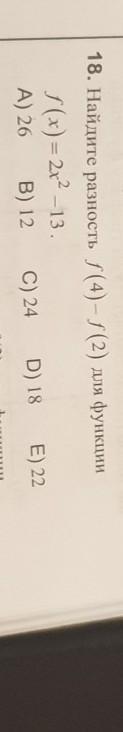 18. Найдите разность f(4) – f(2) для функции
f(x) = 2x² – 13.
A) 26 B) 12 C) 24 D) 18 E) 22